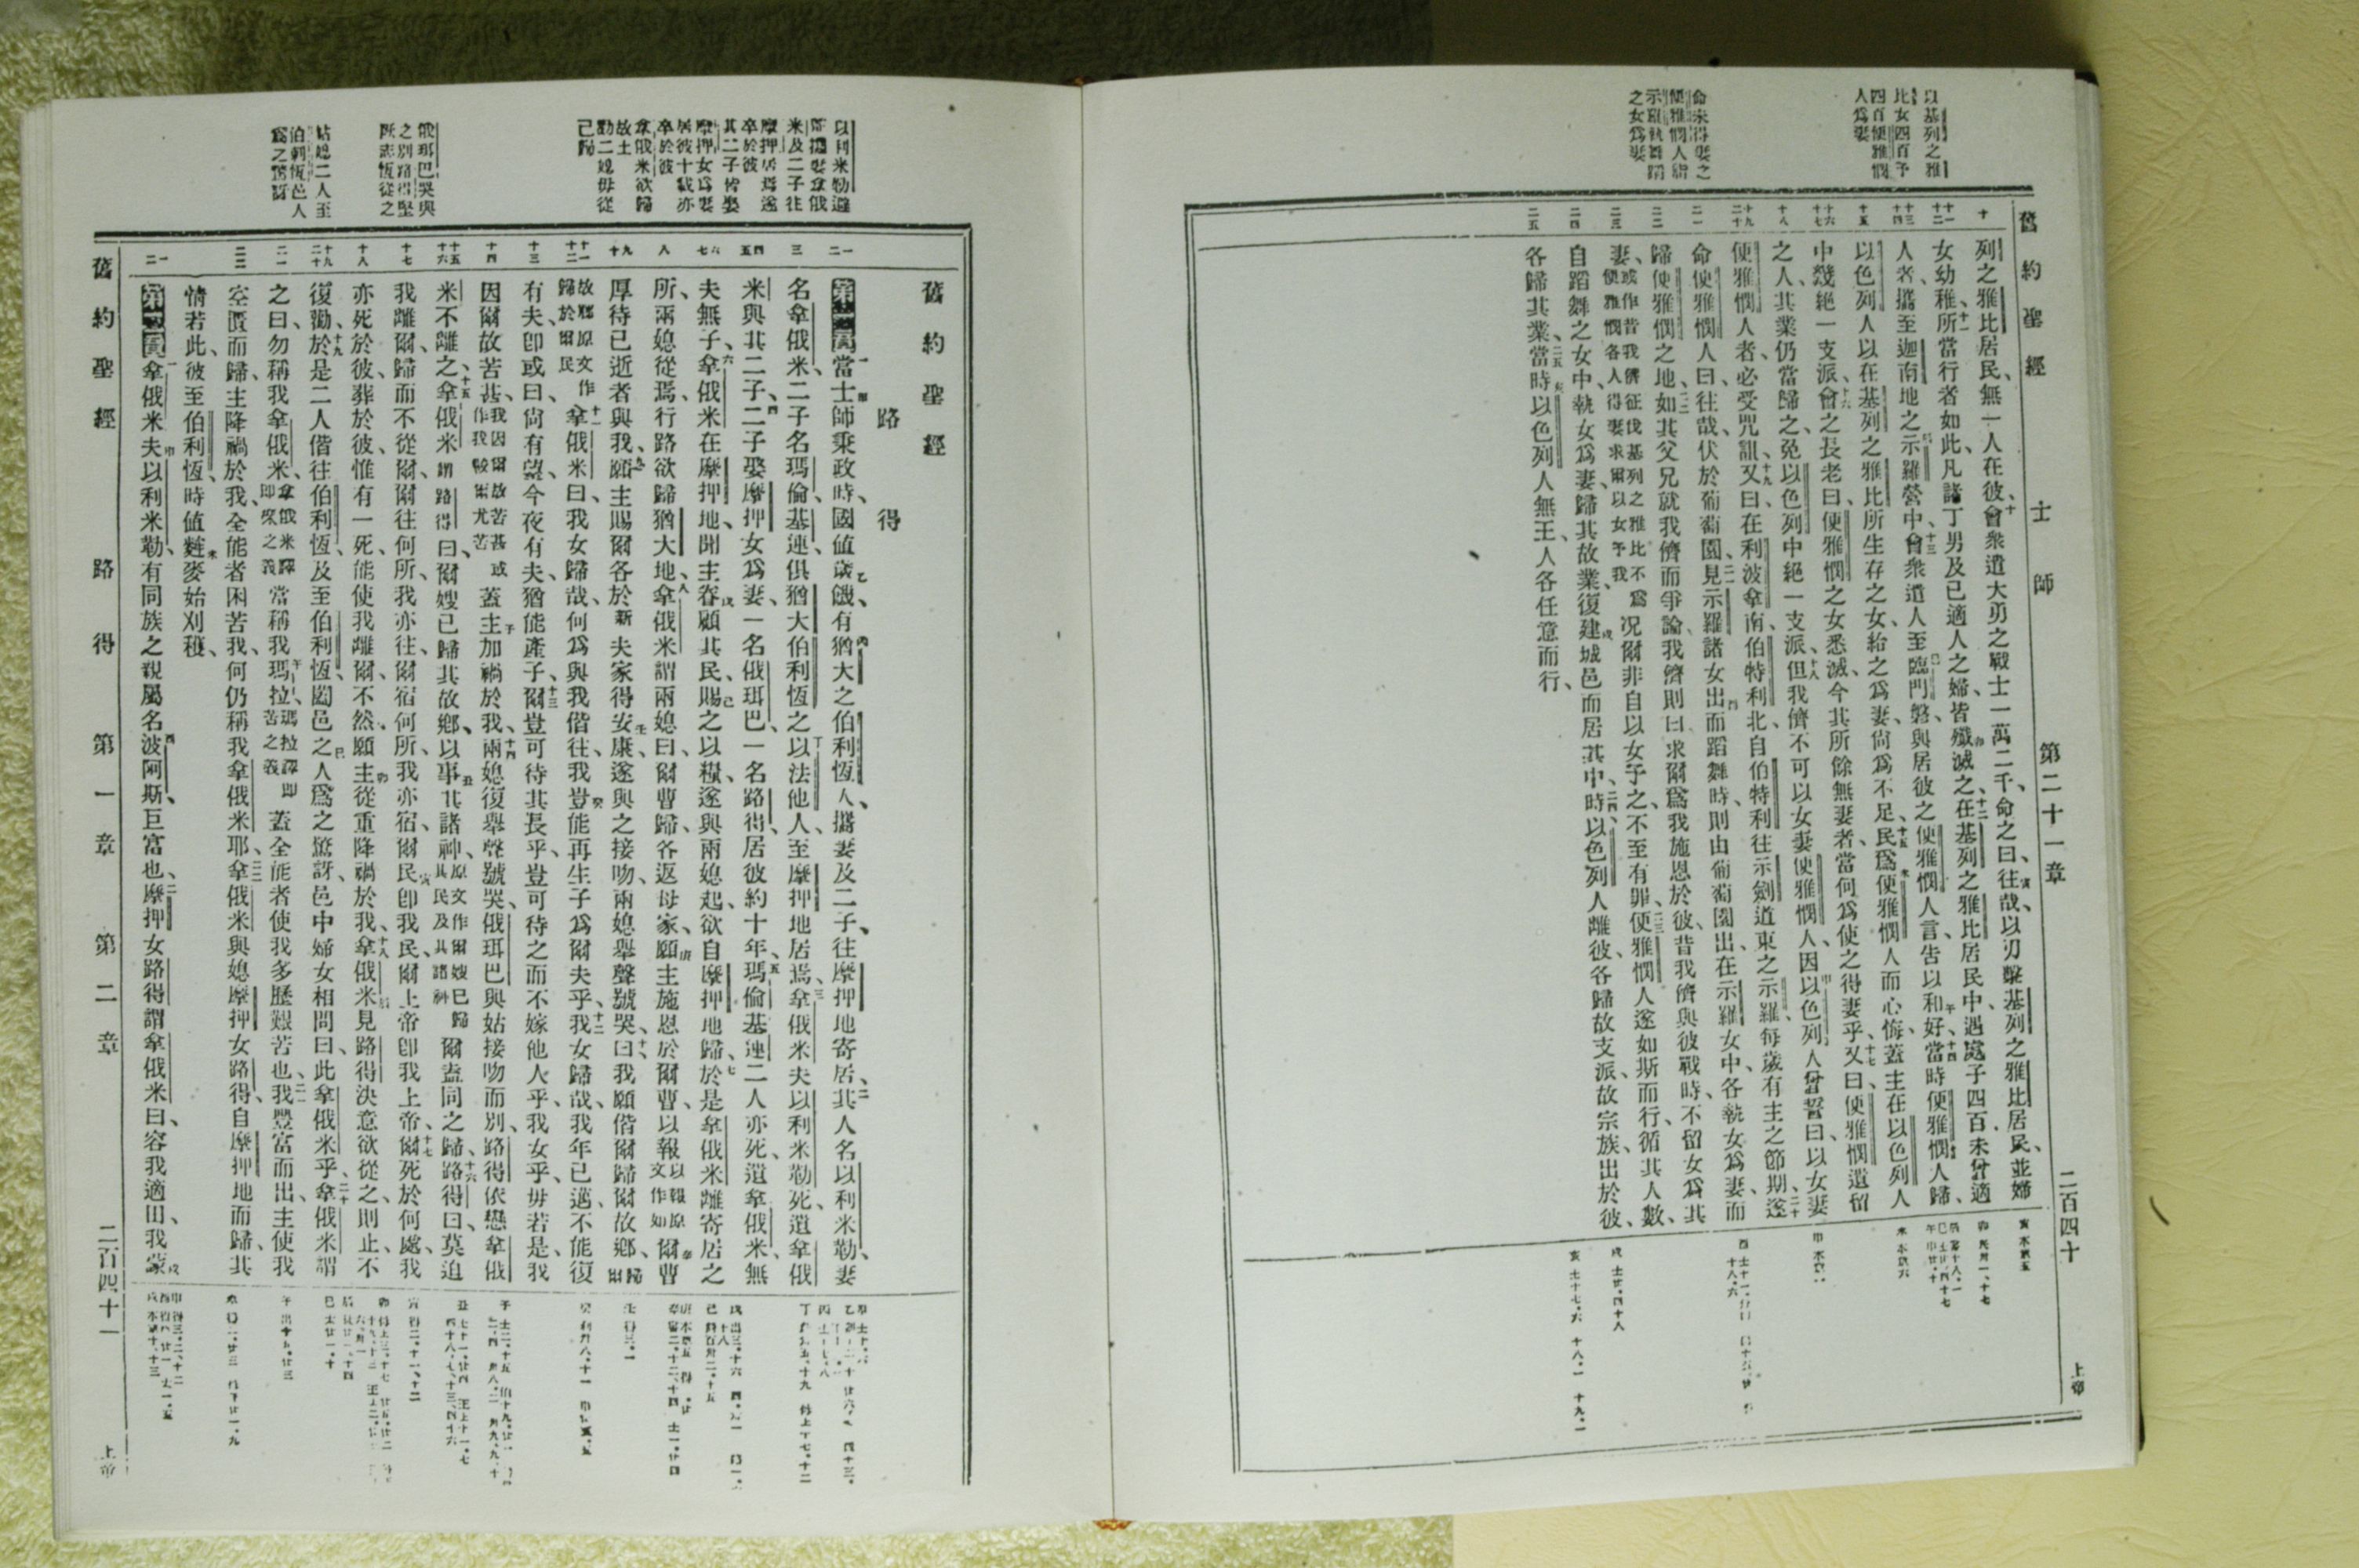 以基列之雅
比女四百予
四百便雅憫
人爲妻
命未得妻之
便雅憫人緝
之女爲妻
舊約聖經 士師 第二十一章 二百四十 上帝
列之雅比居民、無一人在彼、會衆遣大勇之戰士一萬二千、命之曰、往哉、以刃擊基列之雅比居民、並婦
女幼稚、所當行者如此、凡諸丁男及已適人之婦、皆殲滅之、在基列之雅比居民中、遇處子四百未曾適
人者、攜至迦南地之示羅營中、會衆遣人至臨門磐、與居彼之便雅憫人言、告以和好、當時便雅憫人歸、
以色列人以在基列之雅比所生存之女、給之爲妻、尚爲不足、民爲便雅憫人而心悔、蓋主在以色列人
中、幾絕一支派、會之長老曰、便雅憫之女悉滅、今其所餘無妻者、當何爲使之得妻乎、又曰、便雅憫遺留
之人、其業仍當歸之、免以色列中絕一支派、但我儕不可以女妻便雅憫人、因以色列人曾誓曰、以女妻
便雅憫人者、必受咒詛、又曰、在利波拿南、伯特利北、自伯特利往示劍道東之示羅、每歲有主之節期、遂
命便雅憫人曰、往哉、伏於葡萄園、見示羅諸女出而蹈舞時、則由葡萄園出、在示羅女中、各執女爲妻、而
歸便雅憫之地、如其父兄就我儕而爭論、我儕則曰、求爾爲我施恩於彼、昔我儕與彼戰時、不留女爲其
妻、或作昔我儕征伐基列之雅比不爲便雅憫各人得妻求爾以女予我况爾非自以女予之、不至有罪、便雅憫人遂如斯而行、循其人數、
自蹈舞之女中、執女爲妻、歸其故業、復建城邑而居其中、時以色列人離彼、各歸故支派、故宗族、出於彼、
各歸其業、當時以色列人無王、人各任意而行、
以利米勒遭
饑攜妻拿俄
米及二子往
摩押居焉遂
卒於彼
其二子皆娶
摩押女爲妻
居彼十載亦
卒於彼
拿俄米欲歸
故土
勸二媳毋從
己歸
俄珥巴哭與
之別路得堅
既志恆從之
姑媳二人至
伯利恆邑人
爲之驚訝
舊約聖經
路得
第一章當士師秉政時、國値歲饑、有猶大之伯利恆人、攜妻及二子、往摩押地寄居、其人名以利米勒、妻
名拿俄米、二子名瑪倫、基連、俱猶大伯利恆之以法他人、至摩押地居焉、拿俄米夫以利米勒死、遺拿俄
米與其二子、二子娶摩押女爲妻、一名俄珥巴、一名路得、居彼約十年、瑪倫基連二人亦死、遺拿俄米、無
夫無子、拿俄米在摩押地、聞主眷顧其民、賜之以糧、遂與兩媳起、欲自摩押地歸、於是拿俄米離寄居之
所、兩媳從焉、行路欲歸猶大地、拿俄米謂兩媳曰、爾曹歸、各返母家、願主施恩於爾曹、以報以報原文作如爾曹
厚待已逝者與我、願主賜爾各於新夫家得安康、遂與之接吻、兩媳舉聲號哭、曰、我願偕爾歸爾故鄕、歸爾
故鄕原文作歸於爾民拿俄米曰、我女歸哉、何爲與我偕往、我豈能再生子爲爾夫乎、我女歸哉、我年已邁、不能復
有夫、卽或曰、尚有望、今夜有夫、猶能產子、爾豈可待其長乎、豈可待之而不嫁他人乎、我女乎、毋若是、我
因爾故苦甚、我因爾故苦甚或作我較爾尤苦蓋主加禍於我、兩媳復舉聲號哭、俄珥巴與姑接吻而別、路得依戀拿俄
米不離之、拿俄米謂路得曰、爾嫂已歸其故鄕、以事其諸神、原文作爾嫂已歸其民及其諸神爾盍同之歸、路得曰、莫迫
我離爾、歸而不從爾、爾往何所、我亦往、爾宿何所、我亦宿、爾民卽我民、爾上帝卽我上帝、爾死於何處、我
亦死於彼、葬於彼、惟有一死、能使我離爾、不然、願主從重降禍於我、拿俄米見路得決意欲從之、則止不
復勸、於是二人偕往伯利恆、及至伯利恆、闔邑之人爲之驚訝、邑中婦女相問曰、此拿俄米乎、拿俄米謂
之曰、勿稱我拿俄米、拿俄米譯卽樂之義當稱我瑪拉、瑪拉譯卽苦之義蓋全能者使我多歷艱苦也、我豐富而出、主使我
空匱而歸、主降禍於我、全能者困苦我、何仍稱我拿俄米耶、拿俄米與媳摩押女路得、自摩押地而歸、其
情若此、彼至伯利恆、時値麰麥始刈穫、
第二章拿俄米夫以利米勒、有同族之親屬名波阿斯、巨富也、摩押女路得謂拿俄米曰、容我適田、我蒙
舊約聖經 路得 第一章 第二章 二百四十一 上帝